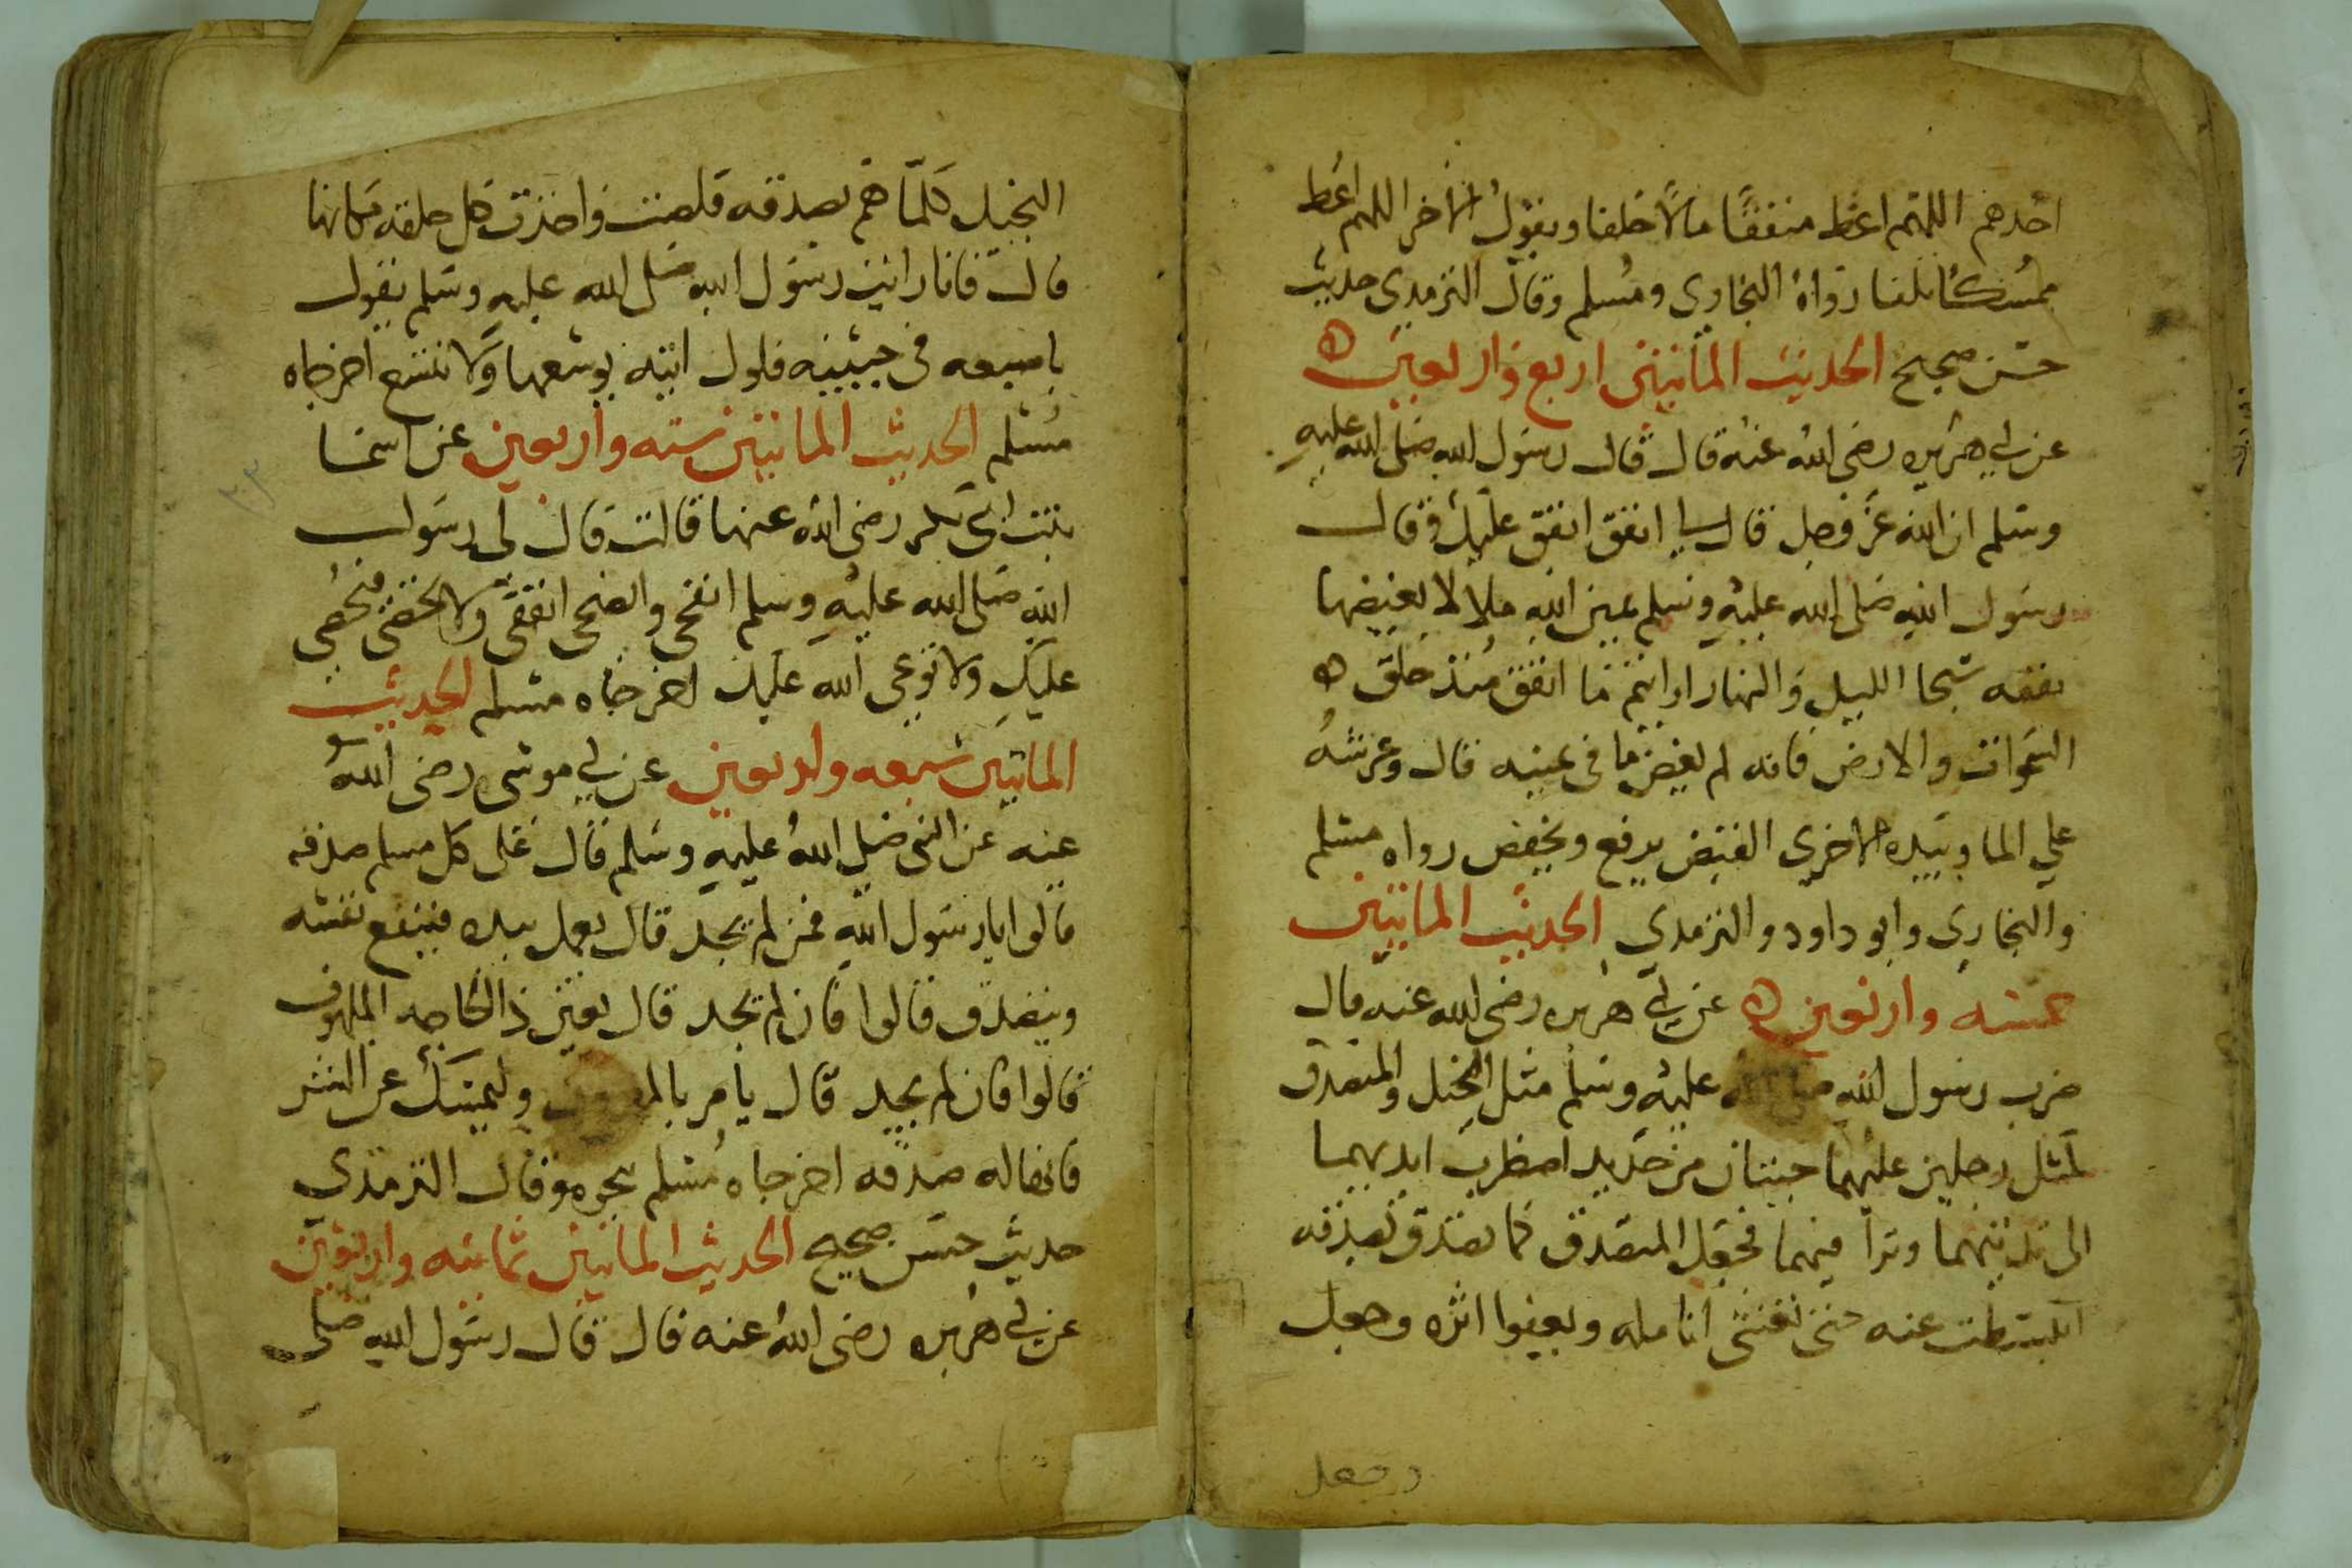 احدهم اللهم اعط منفقًا مالًا خلفا ويقول الاخر اللهم اعط
ممسكًا تلفا رواه البخاري ومسلم وقال الترمدي حديث
حسن صحيح الحديث المأتين اربع واربعين ه
عن ابي هريره رضي الله عنه قال قال رسول الله صلى الله عليه
وسلم ان الله عز وجل قال لي انفق انفق عليك وقال
رسول الله صلى الله عليه وسلم يمين الله ملا لا يغيضها
نفقه سحا الليل والنهار ارايتم ما انفق منذ خلق ه
السموات والارض فانه لم يغض ما في يمينه قال وعرشه
علي الما وبيده الاخري القبض يرفع ويخفض رواه مسلم
والبخاري وابو داود والترمدي الحديث الماتين
خمسه واربعين ه عن ابي هريره رضي الله عنه قال
ضرب رسول الله صلى الله عليه وسلم مثل البخيل والمتصدق
كمثل رجلين عليهما جبتان من حديد اضطرب ايديهما
الى ثدييهما وتراقيهما فجعل المتصدق كما يصدق بصدقه
انبسطت عنه حتى تغشى انامله ويعفوا اثره وجعل
وجعل
البخيل كلما هم بصدقه قلصت واخذت كل حلقه مكانها
قال فانا رايت رسول الله صلى الله عليه وسلم يقول
باصبعه في جبينه فلول ايته يوسعها ولا تتسع اخرجاه
مسلم الحديث الماتين سته واربعين عن اسما
بنت ابي بكر رضي الله عنها قالت قال لي رسول
الله صلى الله عليه وسلم انفحي وانضحي انفقي ولا تحصي فيحصي
عليك ولا توعي الله عليك اخرجاه مسلم الحديث
الماتين سبعه واربعين عن ابي موسى رضي الله
عنه عن النبي صلى الله عليه وسلم قال على كل مسلم صدقه
قالوا يا رسول الله فمن لم يجد قال يعمل بيده فينفع نفسه
ويتصدق قالوا فان لم يجد قال يعين ذا الحاجه الملهوف
قالوا فان لم يجد قال يأمر بالمعروف وليمسك عن الشر
فانها له صدقه اخرجاه مسلم بحوه وقال الترمذي
حديث حسن صحيح الحديث الماتين ثمانيه واربعين
عن ابي هريره رضي الله عنه قال قال رسول الله صلى